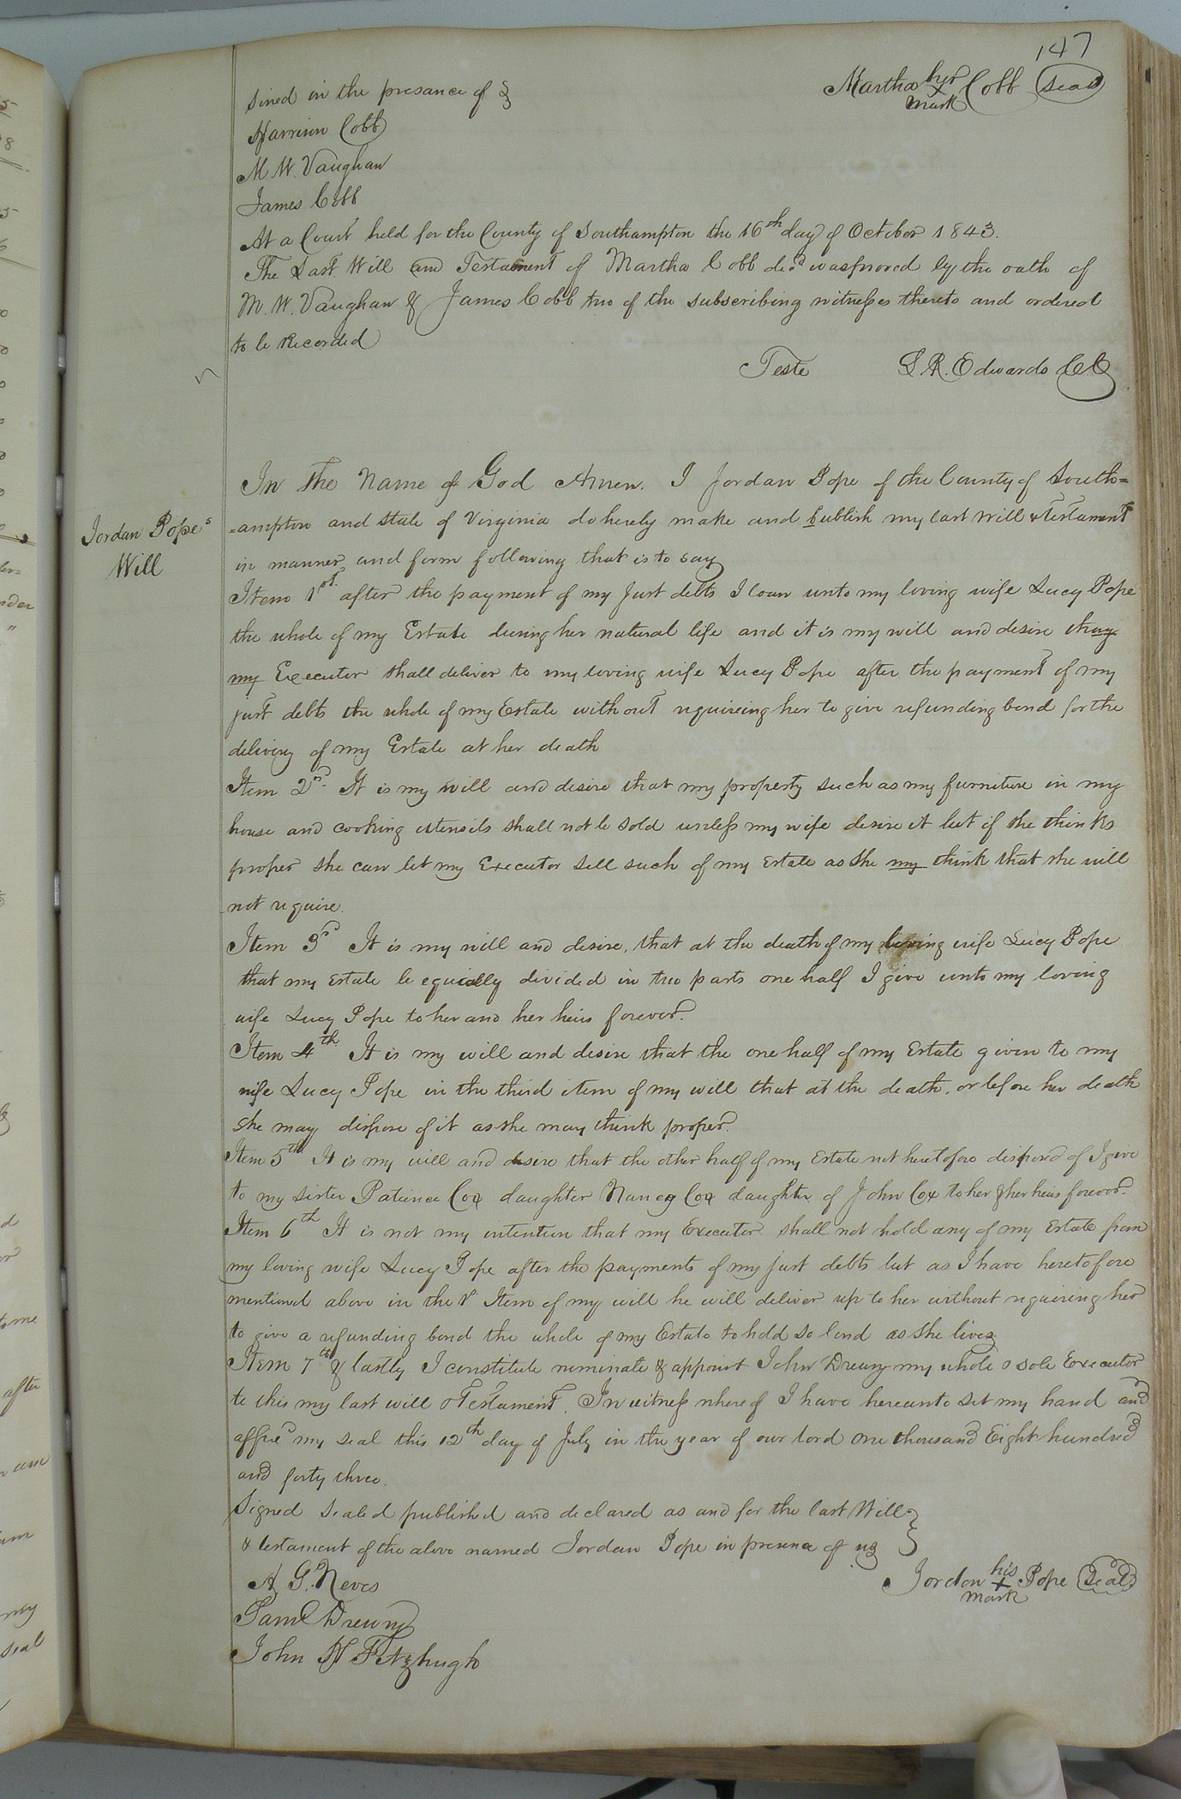 147
Sined in the presance of Martha her X mark Cobb Seal
Harrison Cobb
M. W. Vaughan
James Cobb
At a Court held for the County of Southampton the 16th day of October 1843.
The Last Will and Testament of Martha Cobb decd was proved by the oath of
M. W. Vaughan & James Cobb two of the subscribing witnesses thereto and ordered
to be Recorded
Teste L. R. Edwards CC
Jordan Pope's
Will
In The Name of God Amen. I Jordan Pope of the County of South=
=ampton and State of Virginia do hereby make and publish my last Will & Testament
in manner and form following that is to say
Item 1st after the payment of my just debts I loan unto my loving wife Lucy Pope
the whole of my Estate during her natural life and it is my will and desire
my Executor shall deliver to my loving wife Lucy Pope after the payment of my
just debts the whole of my Estate without requireing her to give refunding bond for the
delivery of my Estate at her death
Item 2nd. It is my will and desire that my property such as my furneture in my
house and cooking utensils shall not be sold unless my wife desire it but if she thinks
proper she can let my Executor sell such of my Estate as she my think that she will
not require.
Item 3rd It is my will and desire, that at the death of my loving wife Lucy Pope
that my Estate be equially divided in two parts one half I give unto my loving
wife Lucy Pope to her and her heirs forever.
Item 4th It is my will and desire that the one half of my Estate given to my
wife Lucy Pope in the third item of my will that at the death, or before her death
she may dispose of it as she may think proper.
Item 5th It is my will and desire that the other half of my Estate not heretofore disposed of I give
to my sister Patience Cox daughter Nancy Cox daughter of John Cox to her & her heirs forever.
Item 6th It is not my intention that my Executor shall not hold any of my Estate from
my loving wife Lucy Pope after the payments of my just debts but as I have heretofore
mentioned above in the 1st Item of my will he will deliver up to her without requiring her
to give a refunding bond the whole of my Estate to hold so lond as she lives
Item 7th & lastly I constitute nominate & appoint John Drewry my whole & sole Executor
to this my last will & Testament. In witness whereof I have hereunto set my hand and
my seal this 12th day of July in the year of our lord One thousand Eight hundred
and forty three.
Signed sealed published and declared as and for the last Will
& testament of the above named Jordan Pope in presence of us
A. G. Neves Jordan his X mark Pope Seal
Saml Drewry
John H Fitzhugh